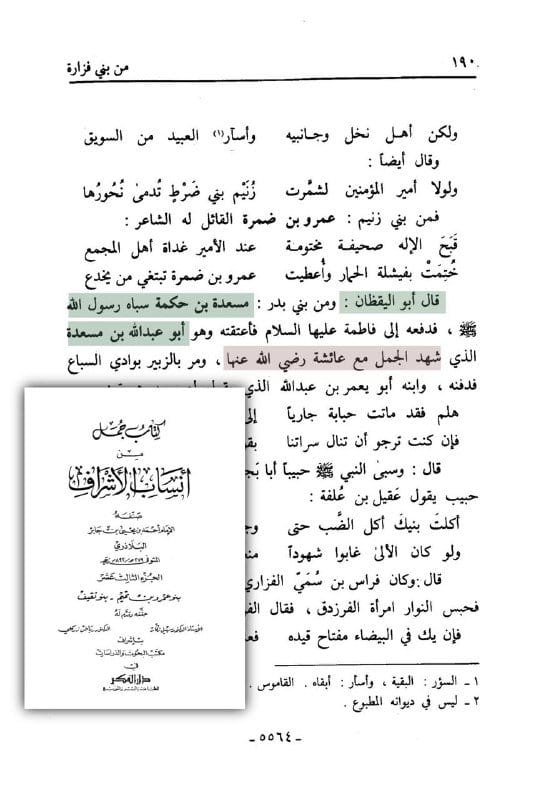 ١٩٠
من بني فزارة
ولكن أهل نخل وجانبيه وأسآر(١) العبيد من السويق
وقال أيضاً :
ولولا أمير المؤمنين لشمَّرت زُنَيْم بني ضَرْطٍ تُدمىٰ نُحُورُها
فمن بني زنيم : عمرو بن ضمرة القائل له الشاعر :
قَبَحَ الإله صحيفة مختومة عند الأمير غداة أهل المجمع
خُتِمَتْ بفيشلة الحمار وأعطيت عمرو بن ضمرة تبتغي من يخدع
قال أبو اليقظان : ومن بني بدر : مسعدة بن حكمة سباه رسول الله
ﷺ ، فدفعه إلى فاطمة عليها السلام فأعتقته وهو أبو عبدالله بن مسعدة
الذي شهد الجمل مع عائشة رضي الله عنها ، ومر بالزبير بوادي السباع
فدفنه ، وابنه أبو يعمر بن عبدالله الذي
هلم فقد ماتت حبابة جارياً
فإن كنت ترجو أن تنال سراتنا
قال : وسبى النبي ﷺ حبيباً أبا
حبيب يقول عَقيل بن عُلفة :
أكلتَ بنيكَ أكل الضَّب حتى
ولو كان الألىٰ غابوا شهوداً
قال : وكان فراس بن سُمَيّ الفزاري
فحبس النوار امرأة الفرزدق ، فقال
فإن يك في البيضاء مفتاح قيده
١ - السؤر : البقية ، وأسأر : أبقاه . القاموس .
٢ - ليس في ديوانه المطبوع .
- ٥٥٦٤ -
كتاب جمل
من
أنساب الأشراف
صنفه
الإمام أحمد بن يحيى بن جابر
البلاذري
الجزء الثالث عشر
بنو عمرو بن تميم - بنو ثقيف
حققه وقدم له
الأستاذ الدكتور سهيل زكار الدكتور رياض زركلي
بإشراف
مكتب البحوث والدراسات
في
دار الفكر
للطباعة والنشر والتوزيع